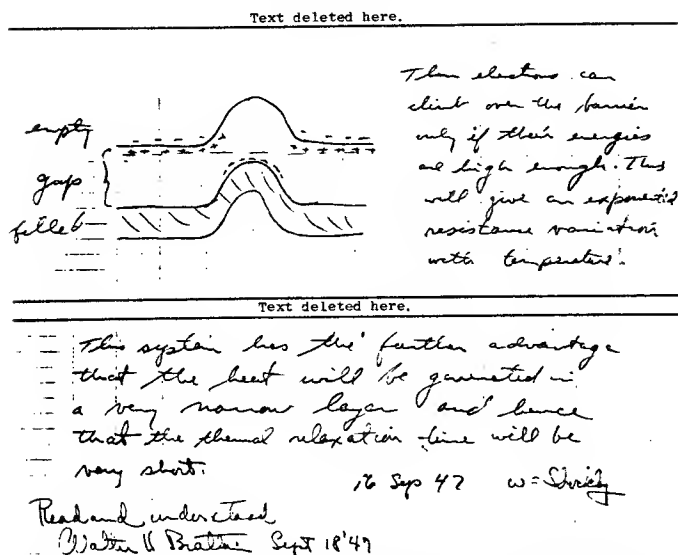 Text deleted here.
empty
gap
filled
Then electrons can
climb over the barrier
only if their energies
are high enough. This
will give an exponential
resistance variation
with temperature.
Text deleted here.
This system has the further advantage
that the heat will be generated in
a very narrow layer and hence
that the thermal relaxation time will be
very short.
16 Sep 47 W Shockley
Read and understood
Walter H Brattain Sept 18'47